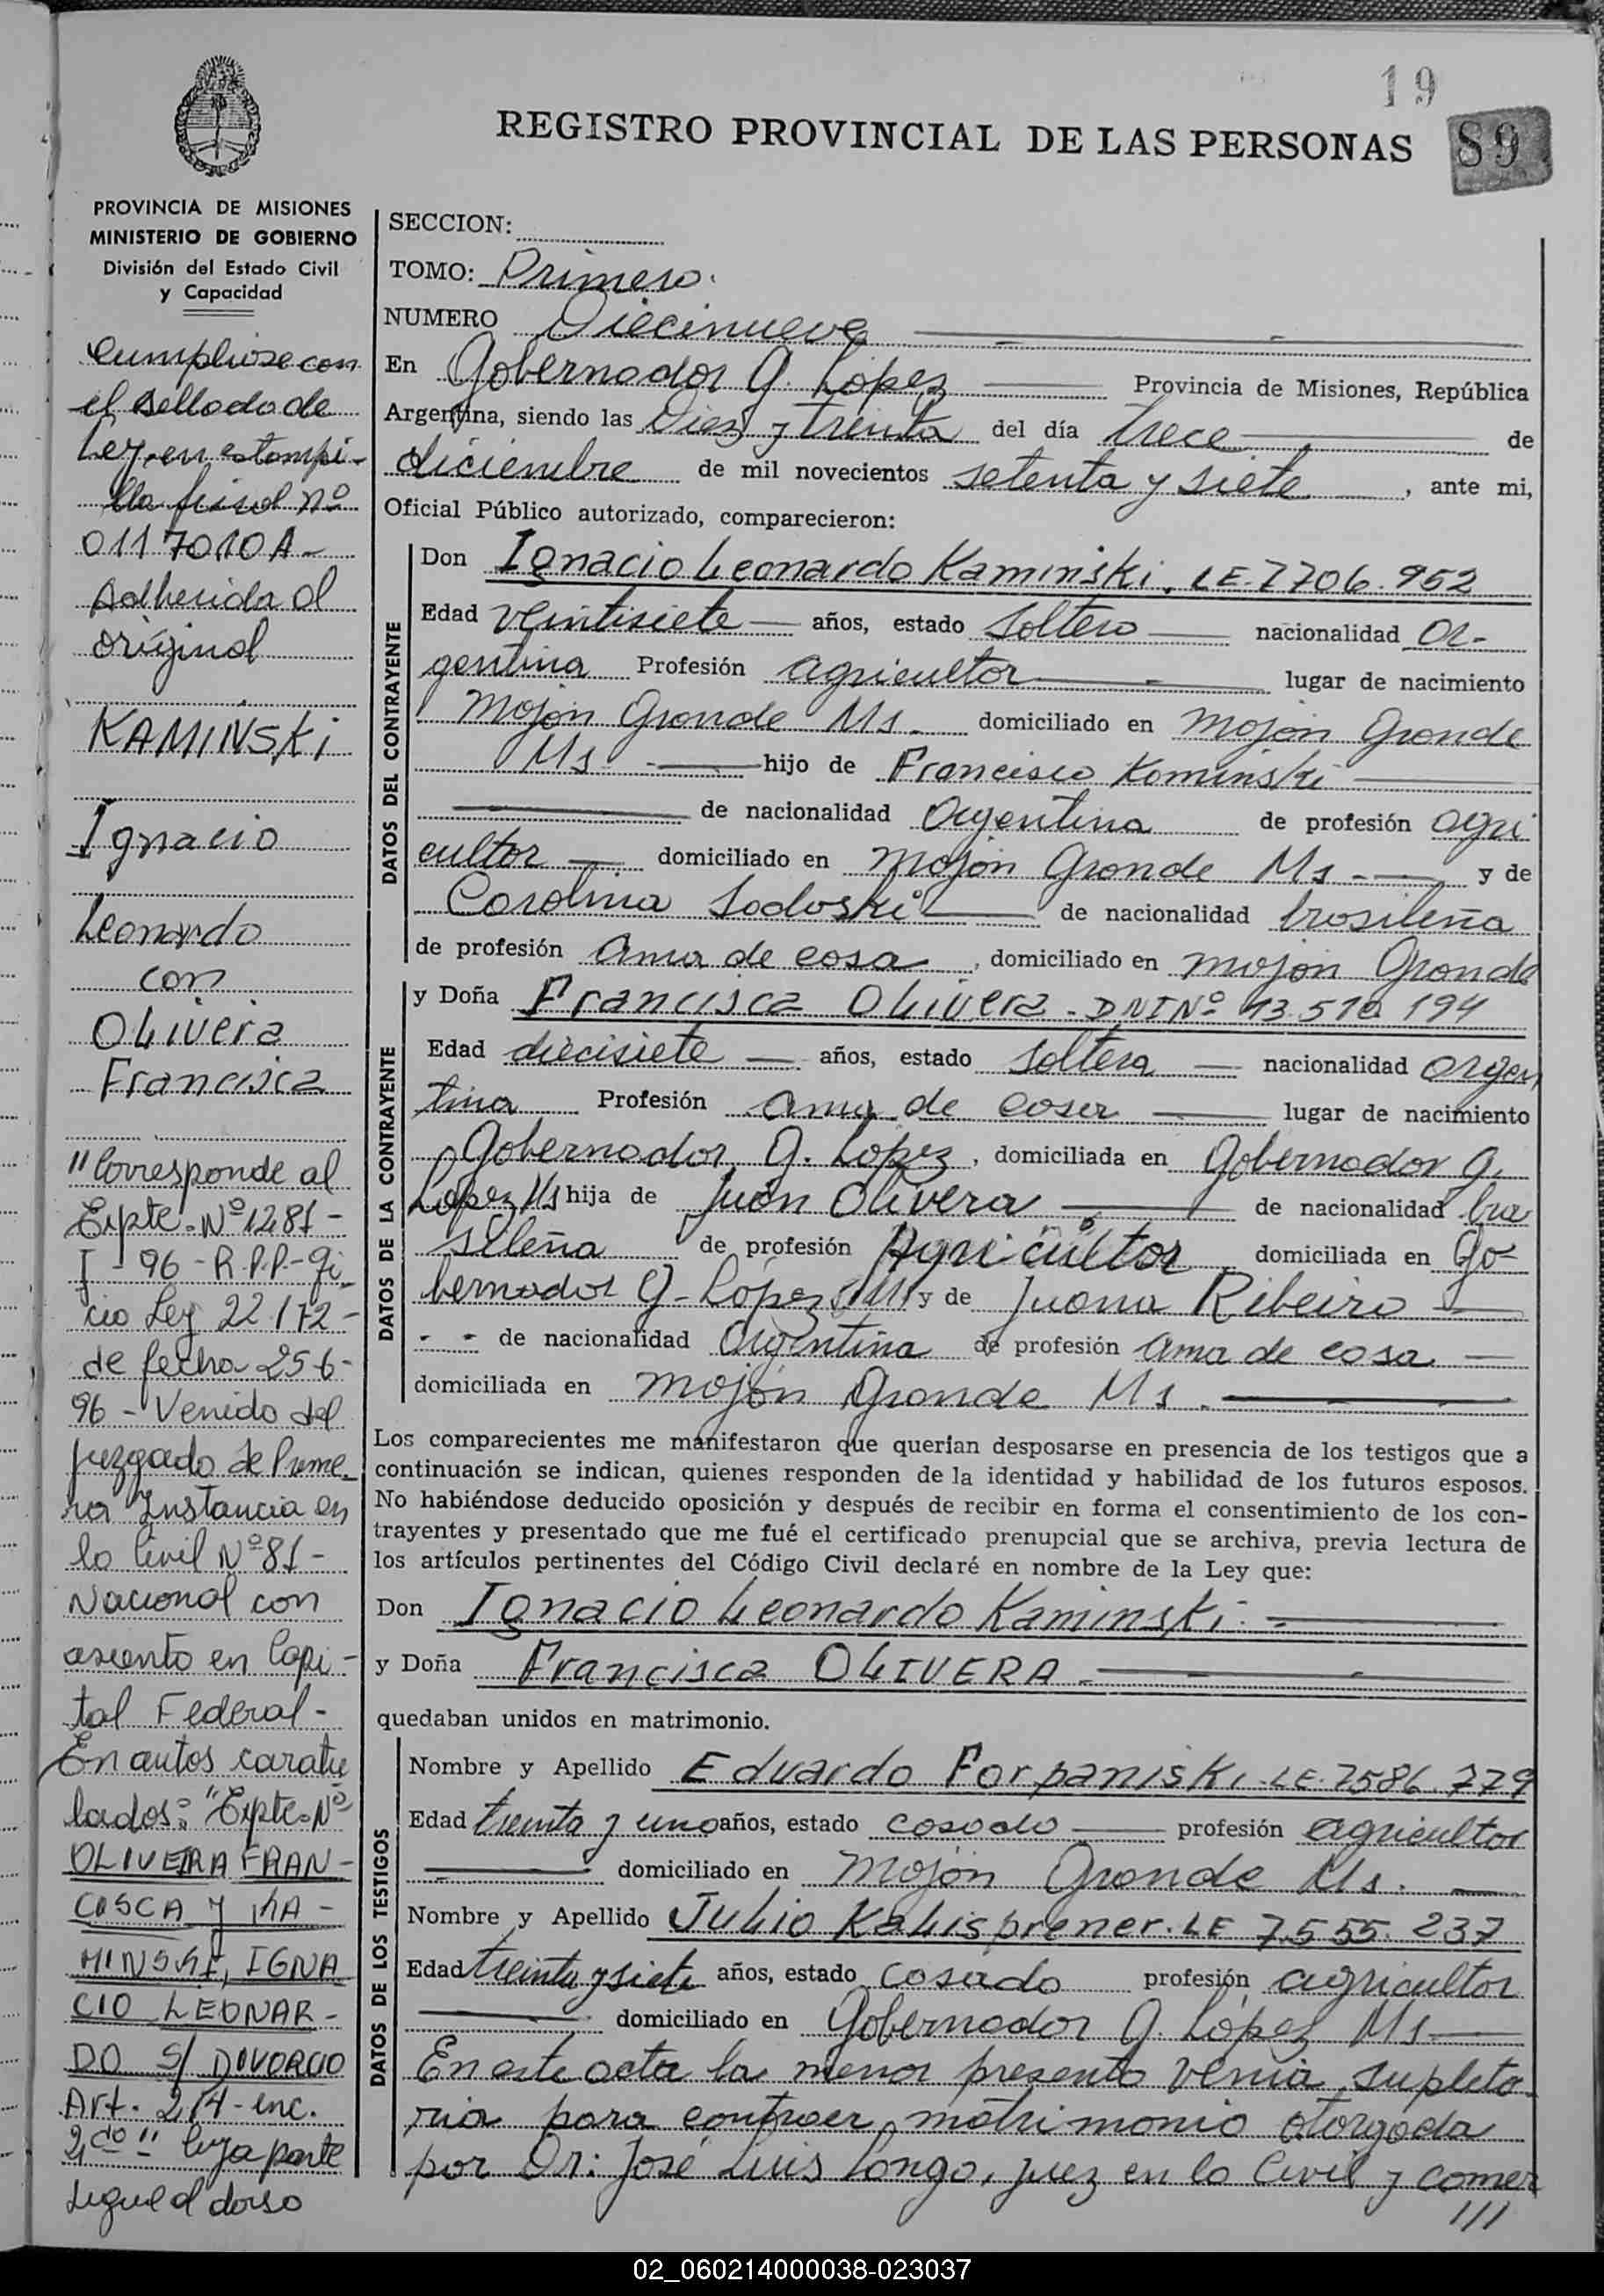 19
REGISTRO PROVINCIAL DE LAS PERSONAS
89
PROVINCIA DE MISIONES
MINISTERIO DE GOBIERNO
División del Estado Civil
y Capacidad
Cumpliose con
el sellado de
Ley, en estampi-
lla fiscal nº
0117010A-
Adherida al
original
KAMINSKI
Ignacio
Leonardo
con
OLivera
Francisca
"Corresponde al
Expte. Nº 1281-
I-96-R.P.P.-Ofi
cio Ley 22.172-
de fecha 25-6-
96-Venido del
Juzgado de Prime-
ra Instancia en
lo Civil Nº 81-
Nacional con
asiento en Capi-
tal Federal-
En autos caratu
lados: "Expte. Nº
OLIVERA FRAN-
CISCA Y KA-
MINSKI, IGNA
CIO LEONAR-
DO S/ DIVORCIO
Art. 214-inc.
2do" Cuya parte
sigue al dorso
SECCION:
TOMO: Primero.
NUMERO Diecinueve
En Gobernador G. López Provincia de Misiones, República
Argentina, siendo las Diez y treinta del día trece de
diciembre de mil novecientos setenta y siete, ante mi,
Oficial Público autorizado, comparecieron:
DATOS DEL CONTRAYENTE
Don Ignacio Leonardo Kaminski. LE. 7706.952
Edad veintisiete años, estado soltero nacionalidad ar-
gentina Profesión agricultor lugar de nacimiento
Mojón Grande Ms. domiciliado en Mojón Grande
Ms hijo de Francisco Kaminski
de nacionalidad Argentina de profesión agri
cultor domiciliado en Mojón Grande Ms. y de
Carolina Sadoski de nacionalidad brasileña
de profesión ama de casa, domiciliado en mojon Grande
DATOS DE LA CONTRAYENTE
y Doña Francisca OLivera. DNI Nº 13.510.194
Edad diecisiete años, estado soltera nacionalidad argen
tina Profesión ama de casa lugar de nacimiento
Gobernador G. López, domiciliada en Gobernador G.
López Ms hija de Juan Olivera de nacionalidad bra
sileña de profesión Agricultor domiciliada en Go
bernador G. López Ms y de Juana Ribeiro
de nacionalidad Argentina de profesión ama de casa
domiciliada en Mojón Grande Ms.
Los comparecientes me manifestaron que querían desposarse en presencia de los testigos que a
continuación se indican, quienes responden de la identidad y habilidad de los futuros esposos.
No habiéndose deducido oposición y después de recibir en forma el consentimiento de los con-
trayentes y presentado que me fué el certificado prenupcial que se archiva, previa lectura de
los artículos pertinentes del Código Civil declaré en nombre de la Ley que:
Don Ignacio Leonardo Kaminski.
y Doña Francisca OLIVERA
quedaban unidos en matrimonio.
DATOS DE LOS TESTIGOS
Nombre y Apellido Eduardo Forpaniski. LE. 7586.779
Edad treinta y uno años, estado casado profesión agricultor
domiciliado en Mojón Grande Ms.
Nombre y Apellido Julio Kalisprener. LE 7.555.237
Edad treinta y siete años, estado casado profesión agricultor
domiciliado en Gobernador G. López Ms
En este acta la menor presento venia supleto-
ria para contraer matrimonio otorgada
por Dr: José Luis Longo, juez en lo Civil y comer
///
02_060214000038-023037